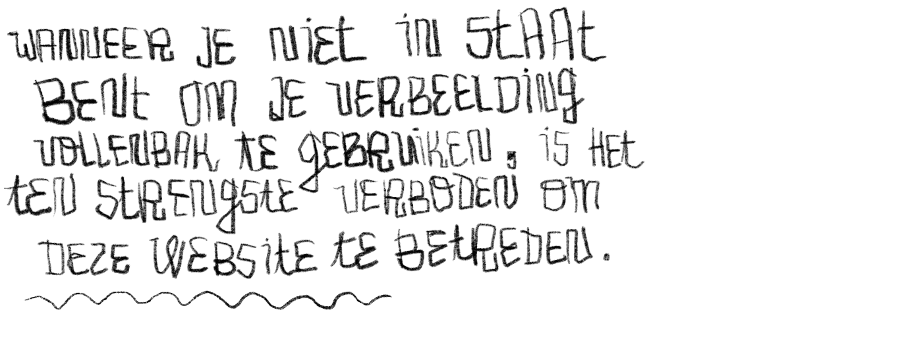 WANNEER JE NIET IN STAAT
BENT OM JE VERBEELDING
VOLLENBAK TE GEBRUIKEN, IS HET
TEN STRENGSTE VERBODEN OM
DEZE WEBSITE TE BETREDEN.